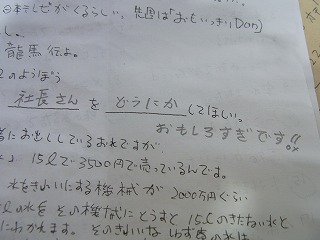 日本テレビがくるらしい、先週は「おもいッきりDon」
し。
龍馬伝よ。
のようぼう
社長さん を どうにか してほしい。
おもしろすぎです!!
者にお出ししているお水ですが、
15ℓで3500円で売っているんです。
水をきれいにする機械が 2000万円ぐらい
の水を その機械に とうすと 15ℓのきたない水と
にわかれます。そのきれいな